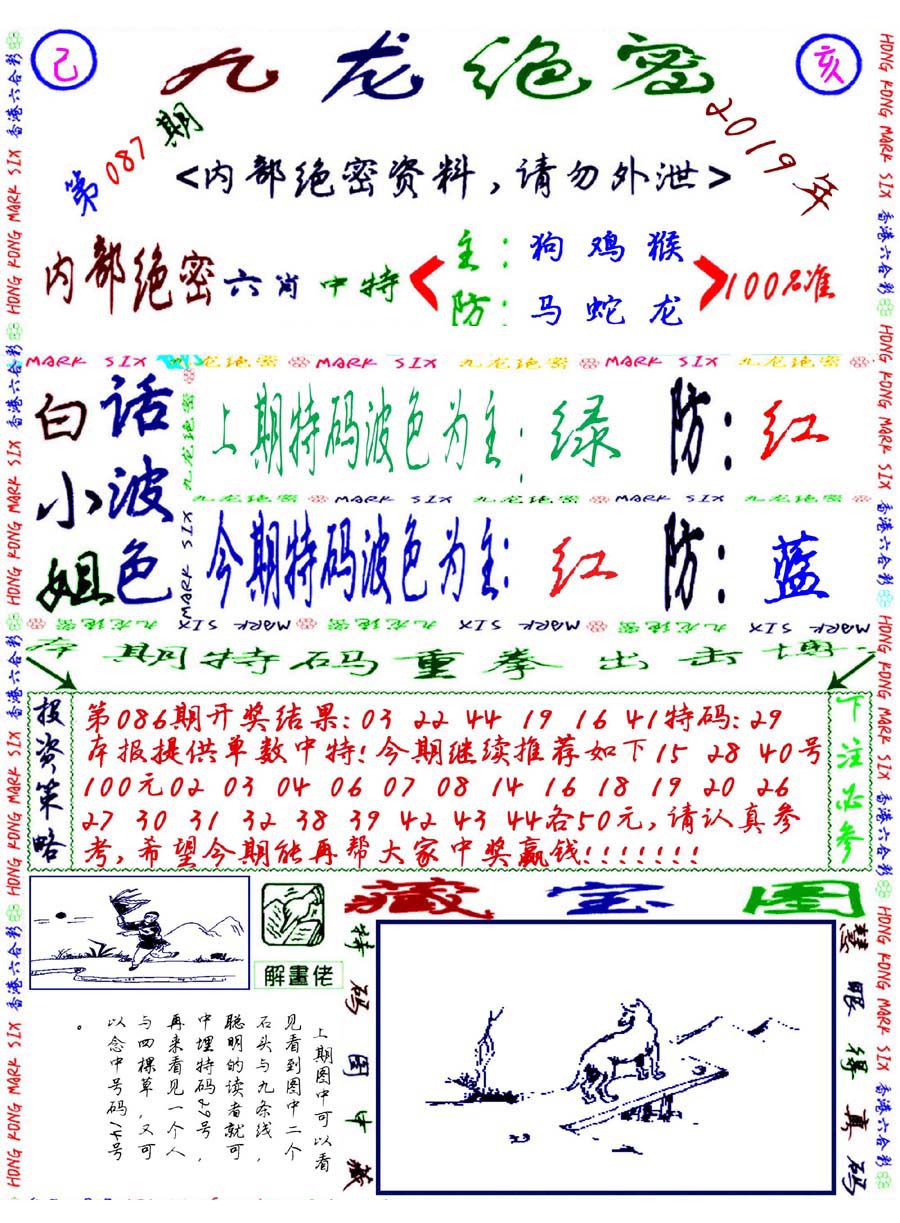 己
九龙绝密
亥
第087期
2019年
<内部绝密资料,请勿外泄>
内部绝密六肖中特
主:狗鸡猴
防:马蛇龙
100%准
MARK SIX 九龙绝密 MARK SIX 九龙绝密 MARK SIX 九龙绝密
白小姐
话波色
上期特码波色为主:绿 防:红
九龙绝密 MARK SIX 九龙绝密 MARK SIX 九龙绝密
今期特码波色为主:红 防:蓝
MARK SIX 九龙绝密
MARK SIX 九龙绝密 MARK SIX 九龙绝密 MARK SIX 九龙绝密
本期特码重拳出击博
投资策略
第086期开奖结果:03 22 44 19 16 41特码:29
本报提供单数中特!今期继续推荐如下15 28 40号
100元02 03 04 06 07 08 14 16 18 19 20 26
27 30 31 32 38 39 42 43 44各50元,请认真参
考,希望今期能再帮大家中奖赢钱!!!!!!!
下注必参
解畫佬
藏宝图
上期图中可以看
见看到图中二个
石头与九条线,
聪明的读者就可
中埋特码29号,
再来看见一个人
与四棵草,又可
以念中号码14号
。
特码图中藏
慧眼得真码
香港六合彩 HONG KONG MARK SIX 香港六合彩 HONG KONG MARK SIX 香港六合彩 HONG KONG MARK SIX 香港六合彩 HONG KONG MARK SIX
HONG KONG MARK SIX 香港六合彩 HONG KONG MARK SIX 香港六合彩 HONG KONG MARK SIX 香港六合彩 HONG KONG MARK SIX 香港六合彩